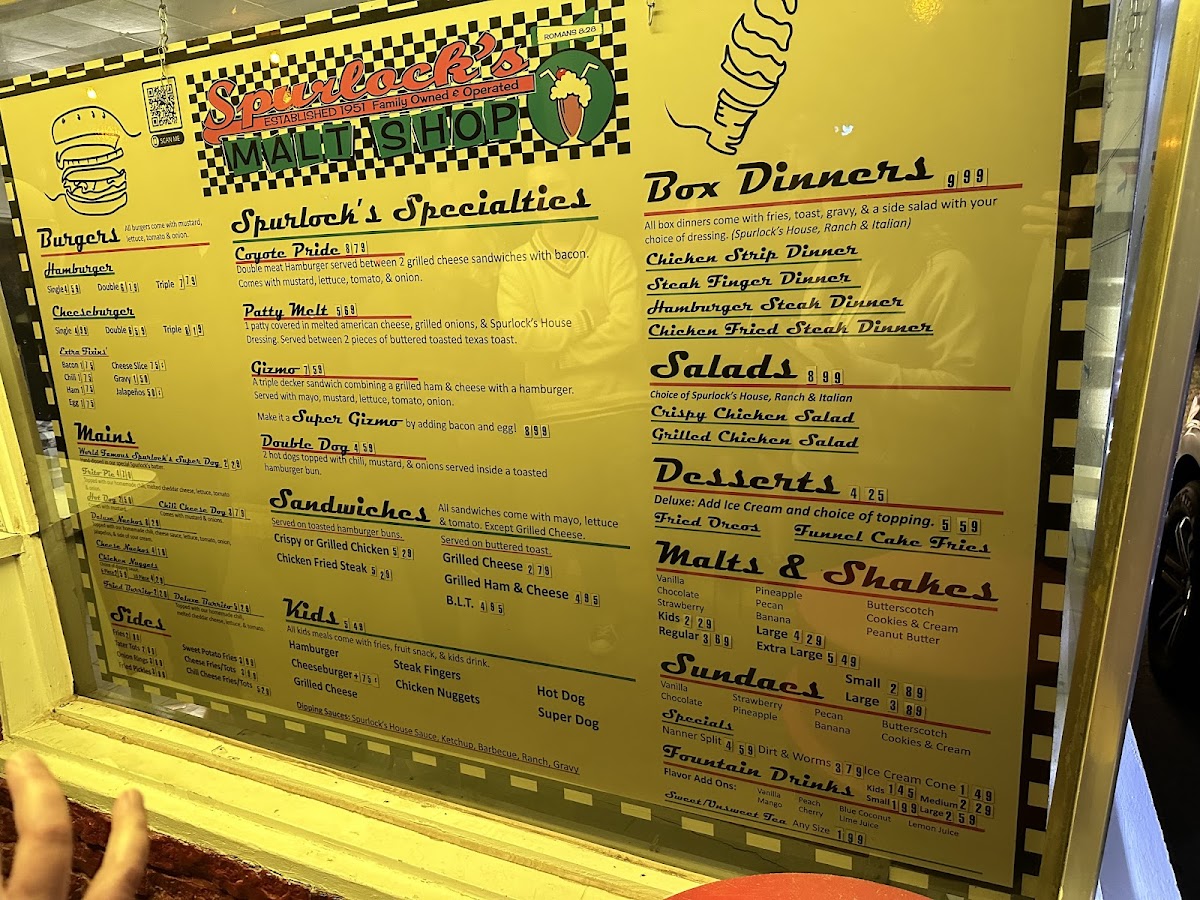 ROMANS 8:28
Spurlock's
ESTABLISHED 1951 Family Owned & Operated
MALT SHOP
SCAN ME
Burgers All burgers come with mustard,
lettuce, tomato & onion.
Hamburger
Single 4 59 Double 6 19 Triple 7 79
Cheeseburger
Single 4 99 Double 6 59 Triple 8 19
Extra Fixins'
Bacon 1 75 Cheese Slice 75¢
Chili 1 75 Gravy 1 50
Ham 1 75 Jalapeños 50¢
Egg 1 75
Mains
World Famous Spurlock's Super Dog 2 29
Frito Pie
Topped with our homemade chili, melted cheddar cheese, lettuce, tomato
& onion.
Hot Dog Chili Cheese Dog 3 75
Comes with mustard. Comes with mustard & onions.
Deluxe Nachos 6 29
Topped with our homemade chili, cheese sauce, lettuce, tomato, onion,
jalapeño, & side of sour cream.
Cheese Nachos 4 19
Chicken Nuggets
Fried Burrito 2 29 Deluxe Burrito 5 29
Topped with our homemade chili,
melted cheddar cheese, lettuce, & tomato.
Sides
Fries
Tater Tots
Onion Rings
Fried Pickles
Sweet Potato Fries
Cheese Fries/Tots
Chili Cheese Fries/Tots 5 29
Spurlock's Specialties
Coyote Pride 8 79
Double meat Hamburger served between 2 grilled cheese sandwiches with bacon.
Comes with mustard, lettuce, tomato, & onion.
Patty Melt 5 69
1 patty covered in melted american cheese, grilled onions, & Spurlock's House
Dressing. Served between 2 pieces of buttered toasted texas toast.
Gizmo 7 59
A triple decker sandwich combining a grilled ham & cheese with a hamburger.
Served with mayo, mustard, lettuce, tomato, onion.
Make it a Super Gizmo by adding bacon and egg! 8 99
Double Dog 4 59
2 hot dogs topped with chili, mustard, & onions served inside a toasted
hamburger bun.
Sandwiches All sandwiches come with mayo, lettuce
& tomato. Except Grilled Cheese.
Served on toasted hamburger buns.
Crispy or Grilled Chicken 5 29
Chicken Fried Steak 5 29
Served on buttered toast.
Grilled Cheese 2 79
Grilled Ham & Cheese 4 95
B.L.T. 4 95
Kids 5 49
All kids meals come with fries, fruit snack, & kids drink.
Hamburger
Cheeseburger +.75¢
Grilled Cheese
Steak Fingers
Chicken Nuggets
Hot Dog
Super Dog
Dipping Sauces: Spurlock's House Sauce, Ketchup, Barbecue, Ranch, Gravy
Box Dinners 9 99
All box dinners come with fries, toast, gravy, & a side salad with your
choice of dressing. (Spurlock's House, Ranch & Italian)
Chicken Strip Dinner
Steak Finger Dinner
Hamburger Steak Dinner
Chicken Fried Steak Dinner
Salads 8 99
Choice of Spurlock's House, Ranch & Italian
Crispy Chicken Salad
Grilled Chicken Salad
Desserts 4 25
Deluxe: Add Ice Cream and choice of topping. 5 59
Fried Oreos Funnel Cake Fries
Malts & Shakes
Vanilla Pineapple Butterscotch
Chocolate Pecan Cookies & Cream
Strawberry Banana Peanut Butter
Kids 2 29 Large 4 29
Regular 3 69 Extra Large 5 49
Sundaes Small 2 89
Large 3 89
Vanilla Strawberry Pecan Butterscotch
Chocolate Pineapple Banana Cookies & Cream
Specials
Nanner Split 4 59 Dirt & Worms 3 79 Ice Cream Cone 1 49
Fountain Drinks Kids 1 45 Medium 2 29
Small 1 99 Large 2 59
Flavor Add Ons: Vanilla Peach Blue Coconut Lemon Juice
Mango Cherry Lime Juice
Sweet/Unsweet Tea Any Size 1 99